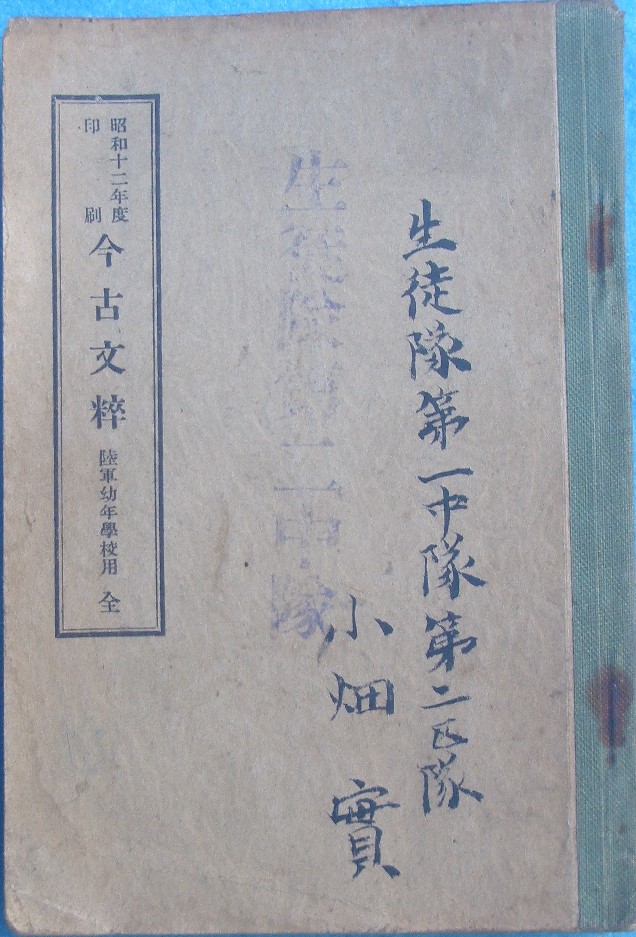 生徒隊第一中隊第二区隊
小畑實
生徒隊第二中隊
昭和十二年度
印刷
今古文粹 陸軍幼年學校用 全